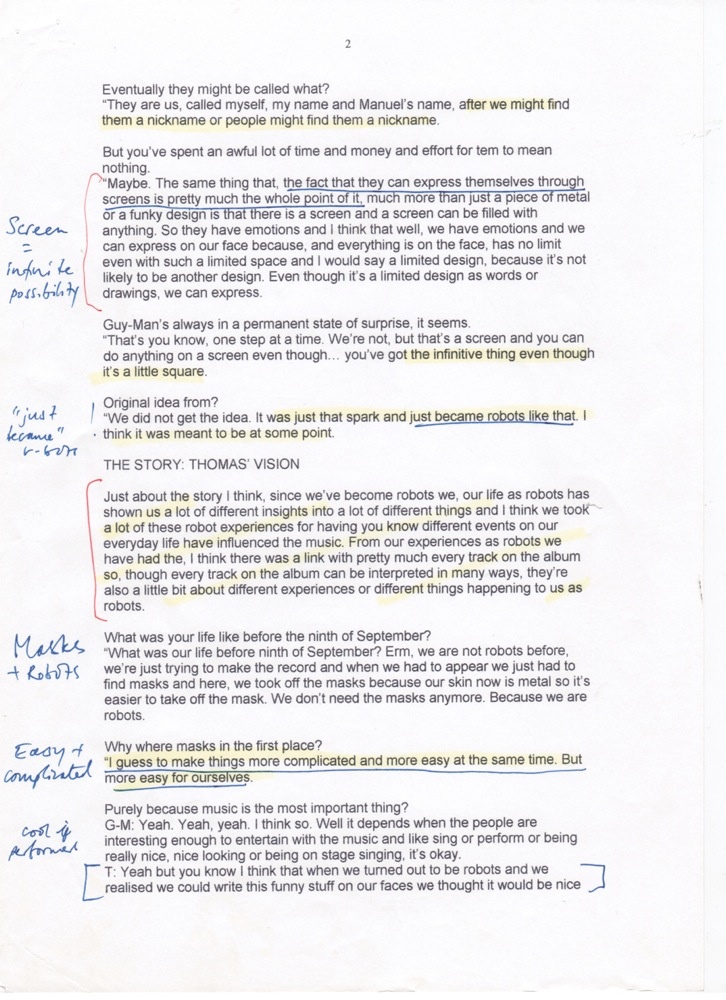 2
Eventually they might be called what?
“They are us, called myself, my name and Manuel’s name, after we might find
them a nickname or people might find them a nickname.
But you’ve spent an awful lot of time and money and effort for tem to mean
nothing.
“Maybe. The same thing that, the fact that they can express themselves through
screens is pretty much the whole point of it, much more than just a piece of metal
or a funky design is that there is a screen and a screen can be filled with
anything. So they have emotions and I think that well, we have emotions and we
can express on our face because, and everything is on the face, has no limit
even with such a limited space and I would say a limited design, because it’s not
likely to be another design. Even though it’s a limited design as words or
drawings, we can express.
Screen
=
infinite
possibility
Guy-Man’s always in a permanent state of surprise, it seems.
“That’s you know, one step at a time. We’re not, but that’s a screen and you can
do anything on a screen even though… you’ve got the infinitive thing even though
it’s a little square.
Original idea from?
“We did not get the idea. It was just that spark and just became robots like that. I
think it was meant to be at some point.
"just
became"
THE STORY: THOMAS’ VISION
Just about the story I think, since we’ve become robots we, our life as robots has
shown us a lot of different insights into a lot of different things and I think we took
a lot of these robot experiences for having you know different events on our
everyday life have influenced the music. From our experiences as robots we
have had the, I think there was a link with pretty much every track on the album
so, though every track on the album can be interpreted in many ways, they’re
also a little bit about different experiences or different things happening to us as
robots.
What was your life like before the ninth of September?
“What was our life before ninth of September? Erm, we are not robots before,
we’re just trying to make the record and when we had to appear we just had to
find masks and here, we took off the masks because our skin now is metal so it’s
easier to take off the mask. We don’t need the masks anymore. Because we are
robots.
Masks
+ Robots
Why where masks in the first place?
“I guess to make things more complicated and more easy at the same time. But
more easy for ourselves.
Easy +
complicated
Purely because music is the most important thing?
G-M: Yeah. Yeah, yeah. I think so. Well it depends when the people are
interesting enough to entertain with the music and like sing or perform or being
really nice, nice looking or being on stage singing, it’s okay.
cool if
performed
T: Yeah but you know I think that when we turned out to be robots and we
realised we could write this funny stuff on our faces we thought it would be nice